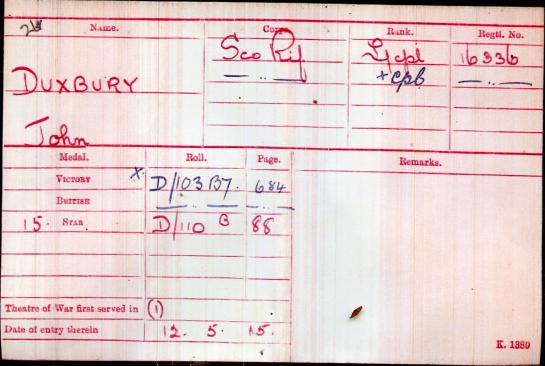 Name. Corps. Rank. Regtl. No.
DUXBURY Sco Rif L/cpl 16336
— " — + cpl — " —
John
Medal. Roll. Page. Remarks.
VICTORY X. D/103 B7. 684
BRITISH — " — — " —
15. STAR D/110 B 88
Theatre of War first served in (1)
Date of entry therein 12. 5. 15.
K. 1380